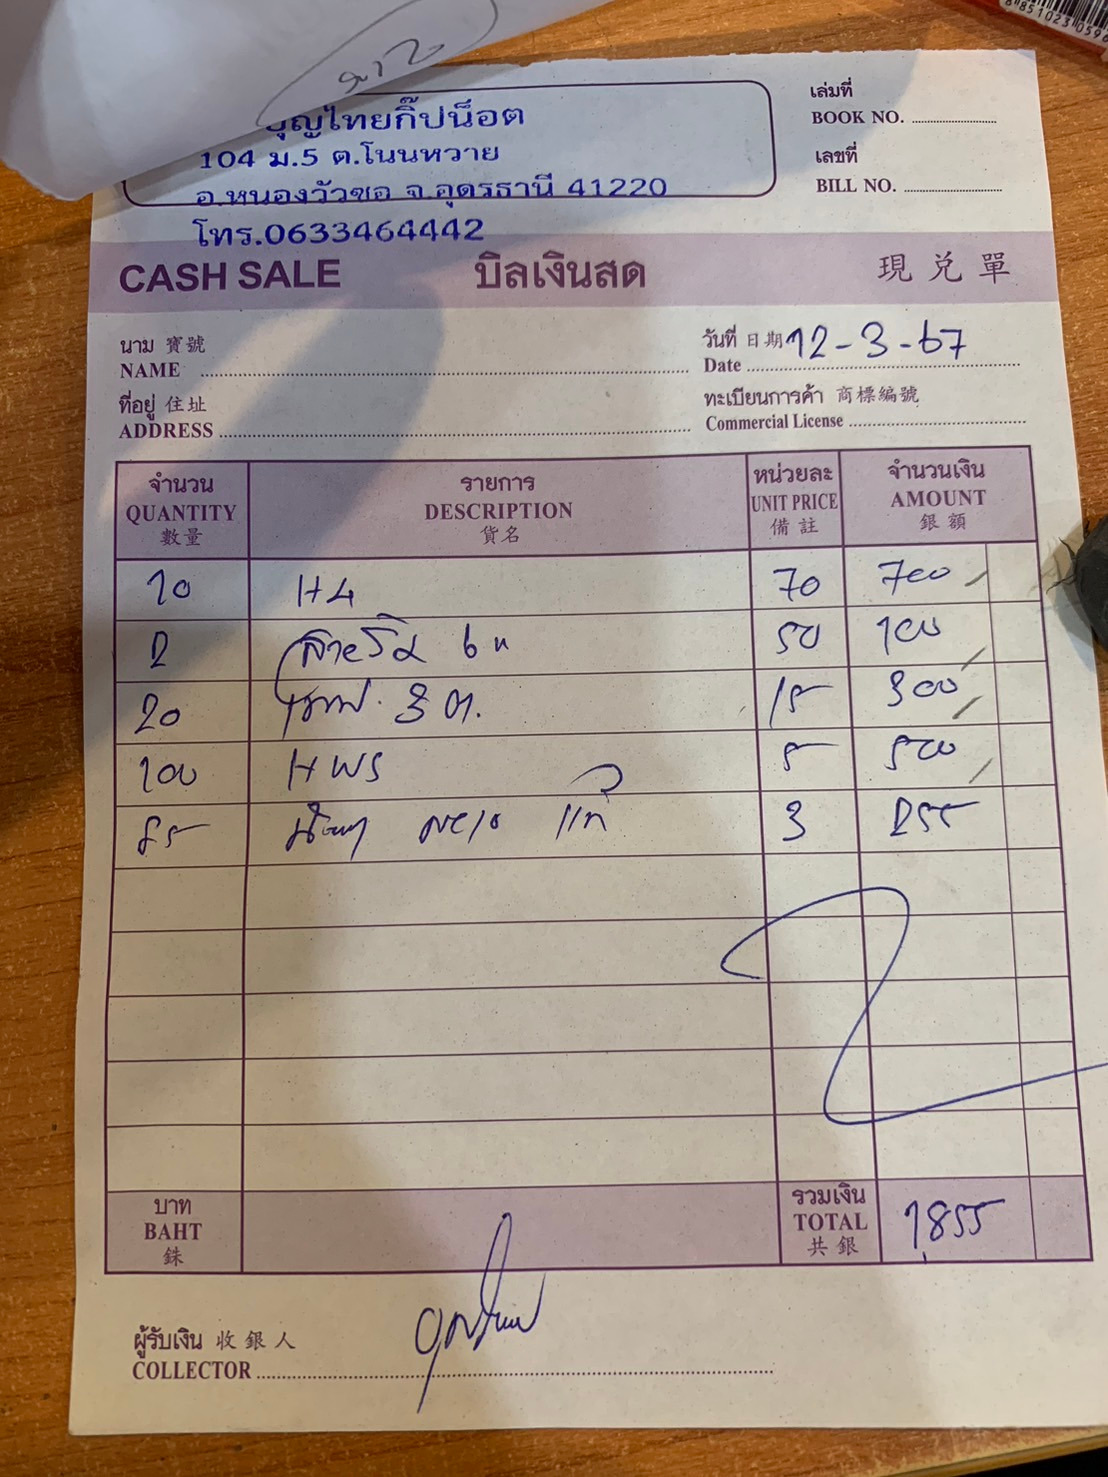 บุญไทยกิ๊ปน็อต
104 ม.5 ต.โนนหวาย
อ.หนองวัวซอ จ.อุดรธานี 41220
โทร.0633464442
เล่มที่
BOOK NO.
เลขที่
BILL NO.
CASH SALE บิลเงินสด 現兌單
นาม 寶號
NAME
วันที่ 日期 12-3-67
Date
ที่อยู่ 住址
ADDRESS
ทะเบียนการค้า 商標編號
Commercial License
จำนวน รายการ หน่วยละ จำนวนเงิน
QUANTITY DESCRIPTION UNIT PRICE AMOUNT
數量 貨名 備註 銀額
10 H4 70 700
2 6 50 100
20 3 ต. 15 300
100 HWS 5 500
85 แท้ 3 255
บาท รวมเงิน
BAHT TOTAL 1855
銖 共銀
ผู้รับเงิน 收銀人
COLLECTOR
8851023059